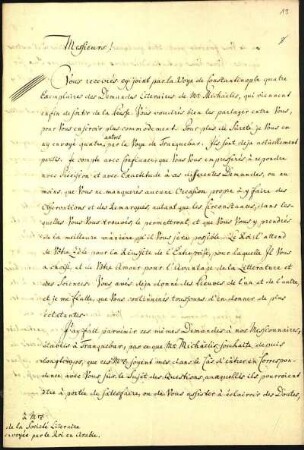 Messieurs!
Vous recevrés cy joint par la Voye de Constantinople quatre
Exemplaires des Demandes Literaires de Mr. Michaelis, qui viennent
enfin de sortir de la Presse. Vous voudrés bien les partager entre Vous,
pour Vous en servir plus commodement. Pour plus de Sureté, je Vous en
ay envoyé autant par la Voye de Tranquebar. Ils sont deja actuellement
partis. Je compte avec confiance, que Vous Vous empresserés à repondre
avec Precision et avec Exactitude à ces differentes Demandes, ou au
moins, que Vous ne manquerés aucune Occasion propre à y faire des
Observations et des Remarques, autant que les Circonstances, dans les-
quelles Vous Vous trouvés, le permettront, et que Vous Vous y prendrés
de la meilleure maniere, qu'il Vous sera possible. Le Roi s'attend
de Votre Zele pour la Reussite de l'Entreprise, pour laquelle Il Vous
a choisi, et de Votre Amour pour l'Avantage de la Litterature et
des Sciences. Vous avés deja donné des Preuves de l'un et de l'autre,
et je me flatte, que Vous continuerés toujours d'en donner de plus
éclatantes.
J'ay fait parvenir ces mêmes Demandes à nos Missionnaires,
établis à Tranquebar, parce que Mr. Michaelis souhaite depuis
longtemps, que ces Mrs. soyent mis dans le Cas d'entrer en Correspon-
dence avec Vous sur le Sujet des Questions, auxquelles ils pourroient
être à portée de satisfaire, ou de Vous assister à éclaircir des Doutes,
à Mrs.
de la Societé Literaire
envoyée par le Roi en Arabie.